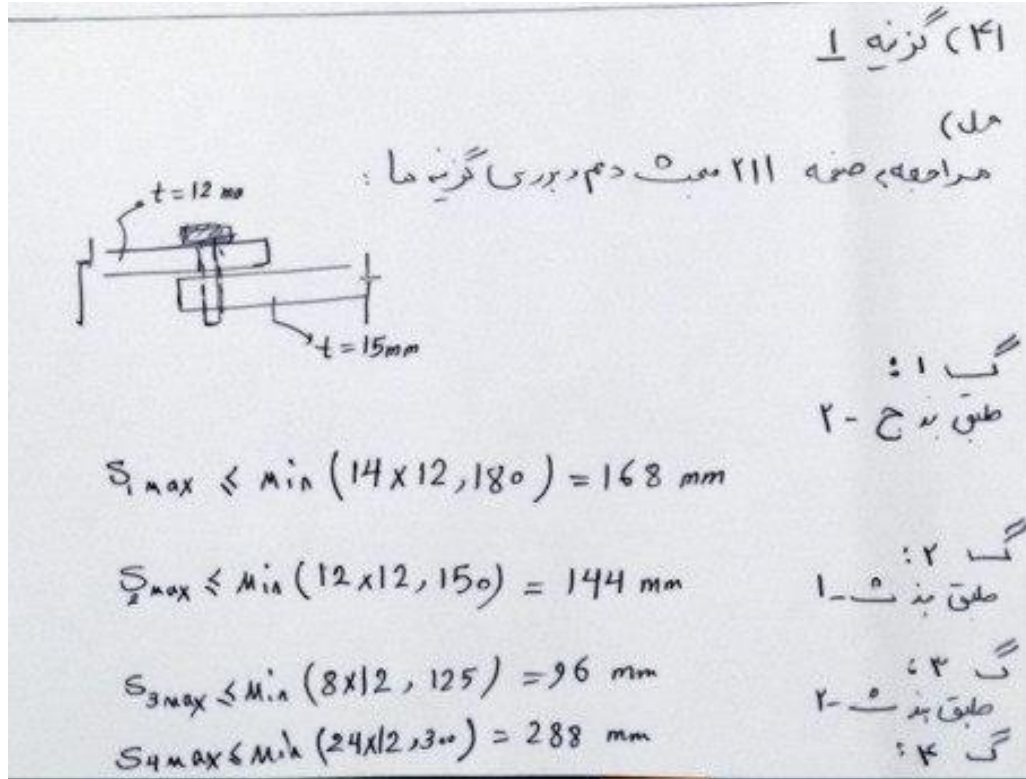 ۴۱) گزینه ۱
حل)
مراجعه به صفحه ۲۱۱ مبحث دهم و بررسی گزینه ها :
t = 12 mm
t = 15 mm
گ ۱ :
طبق بند ج -۲
S₁max ≤ min (14×12 , 180) = 168 mm
گ ۲ :
طبق بند ث -۱
S₂max ≤ min (12×12 , 150) = 144 mm
گ ۳ :
طبق بند ث -۲
S₃max ≤ min (8×12 , 125) = 96 mm
گ ۴ :
S₄max ≤ min (24×12 , 300) = 288 mm